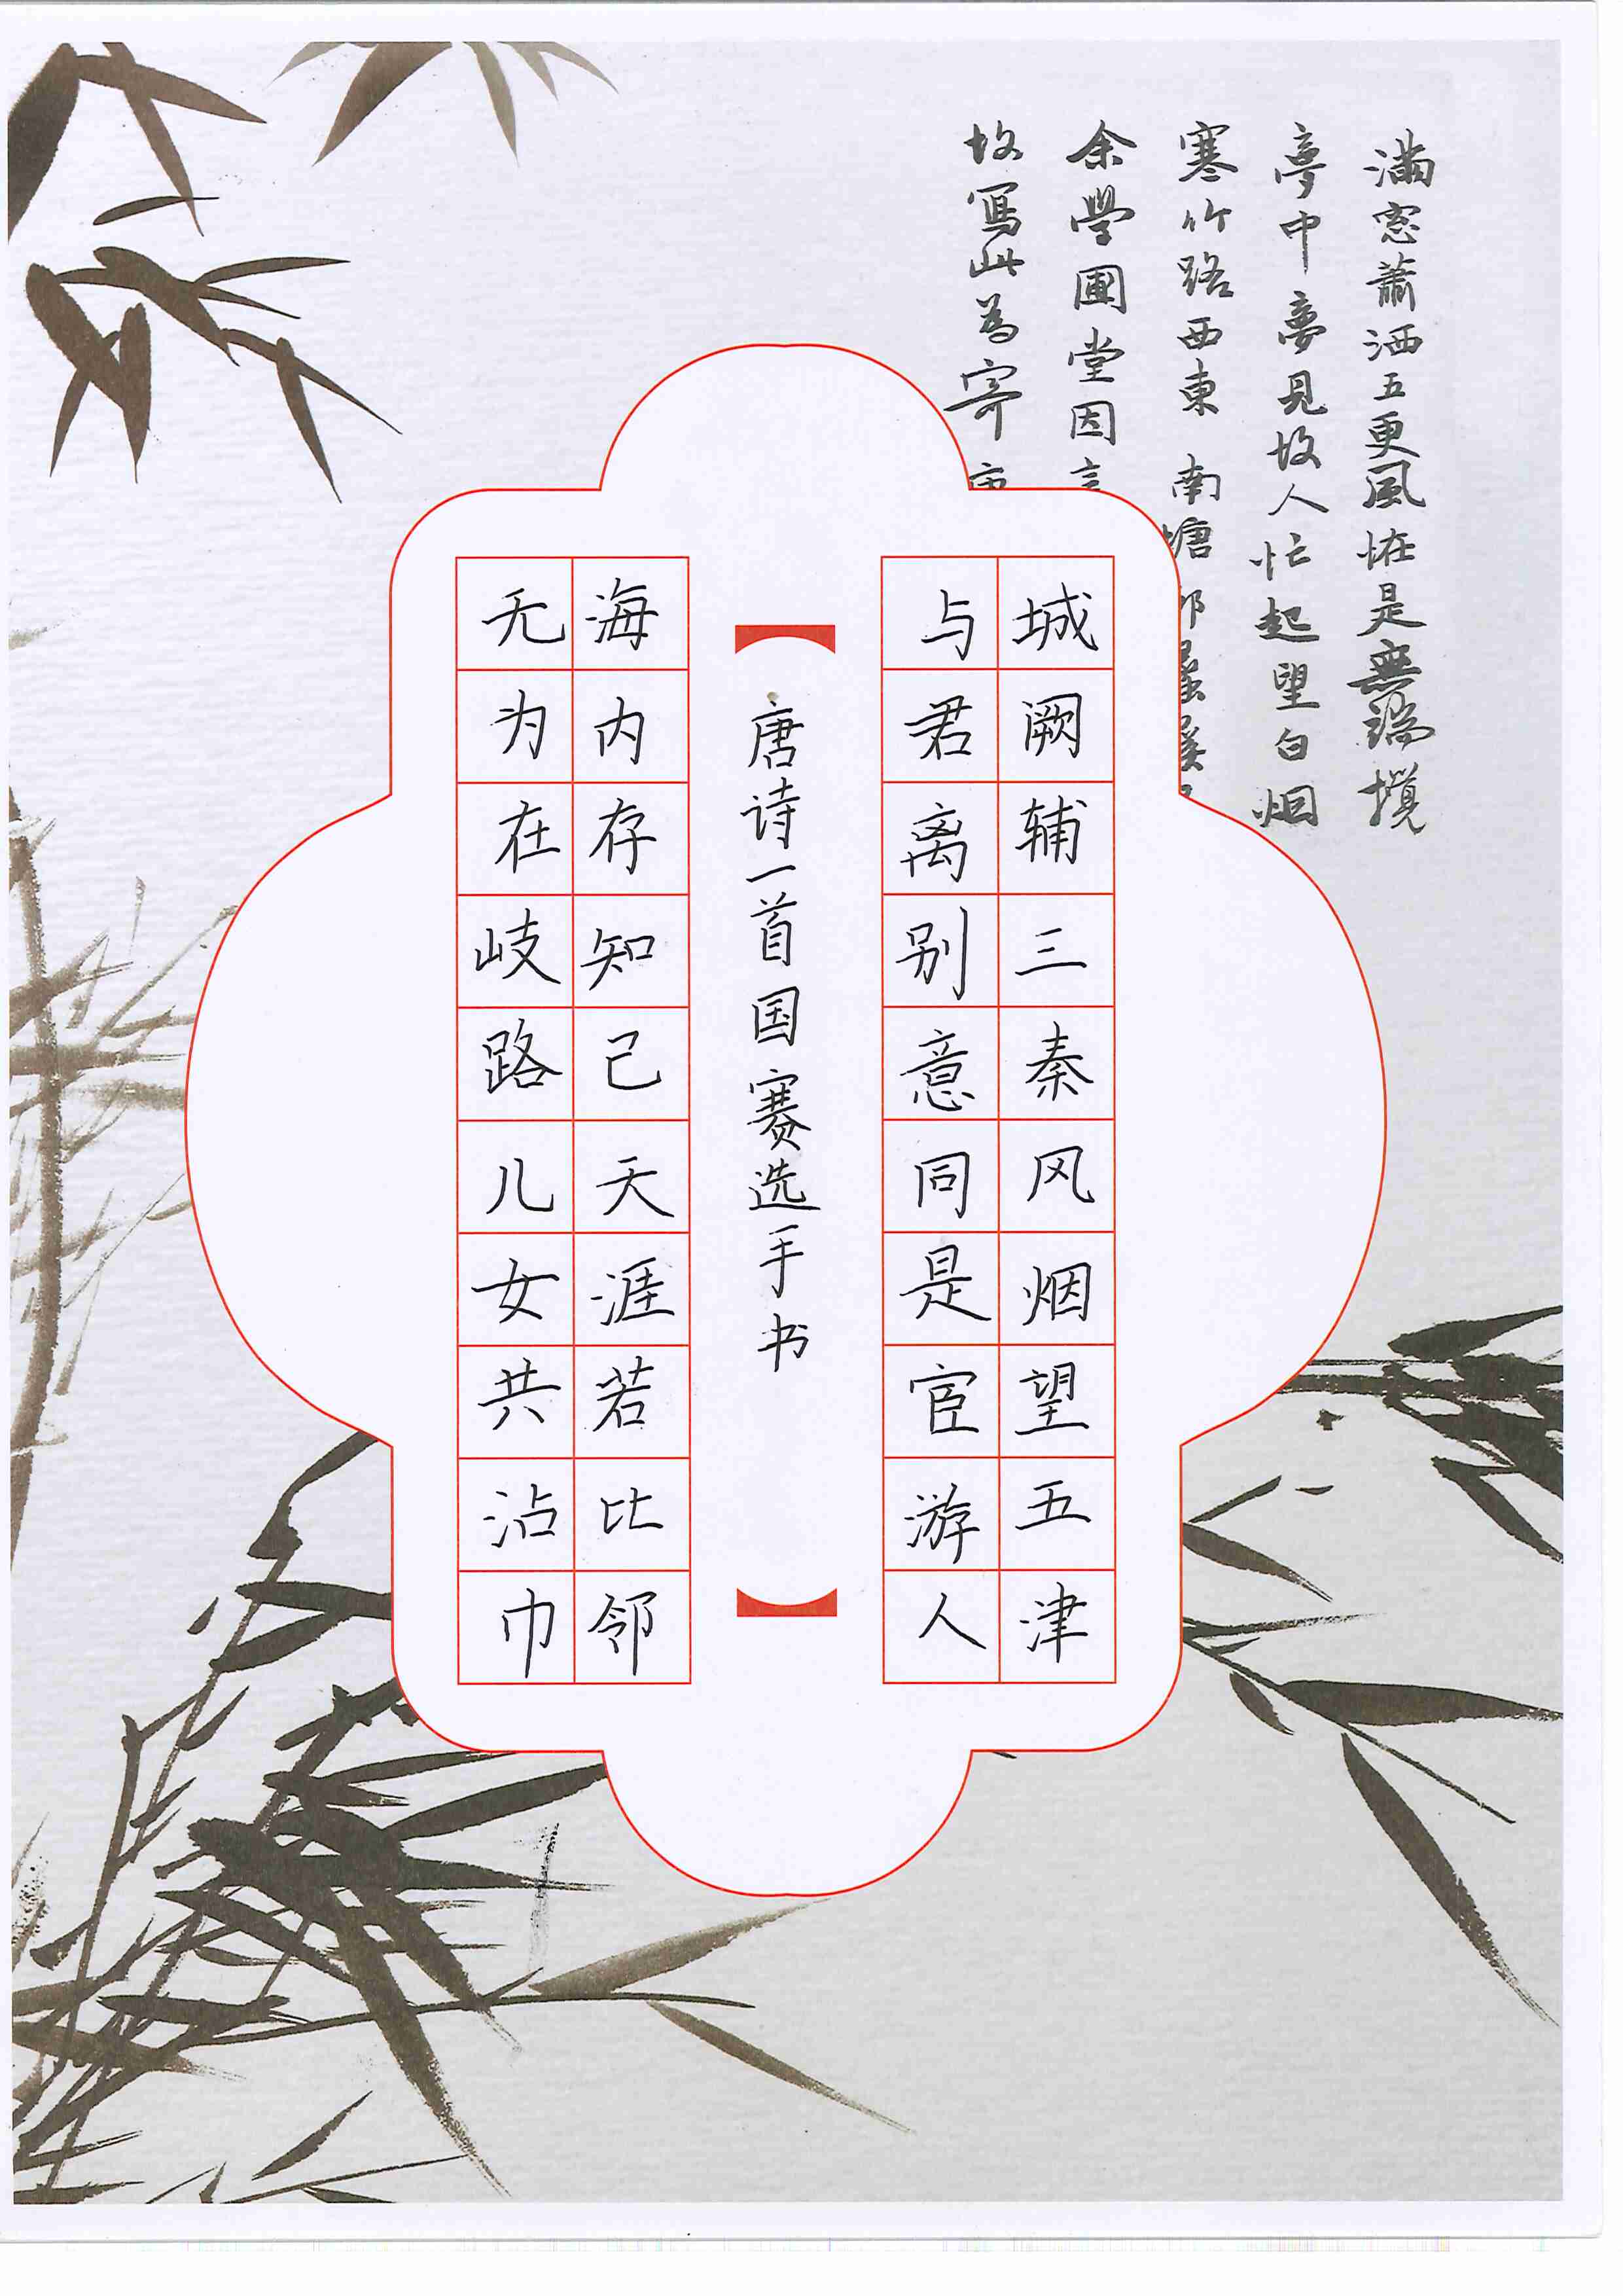 滿窓蕭洒五更風恠是無端攪
夢中夢見故人忙起望白烟
寒竹路西東南塘
余學圃堂因
故寫此為寄
城阙辅三秦风烟望五津
与君离别意同是宦游人
唐诗一首国赛选手书
海内存知己天涯若比邻
无为在岐路儿女共沾巾